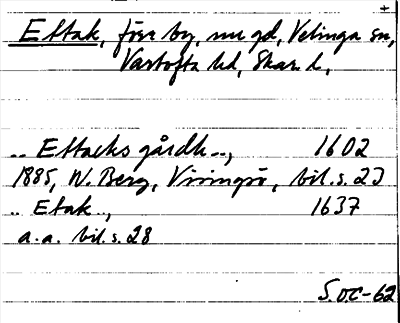 +
Ettak, förr by, nu gd, Velinga sn,
Vartofta hd, Skar. l.
.. Ettacks gårdh.., 1602
1885, W. Berg, Visingsö, bil. s. 23
.. Etak.., 1637
a.a. bil. s. 28
S.O.C-62